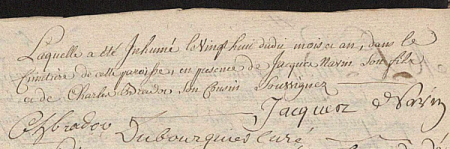 Laquelle a été Inhumé le vingt huit dudit mois et an, dans le
Cimitiere de cette paroisse, en presence de Jacques Marin Son fils
et de Charles Son Cousin Soussignés
Jacques
Dubourgnies curé